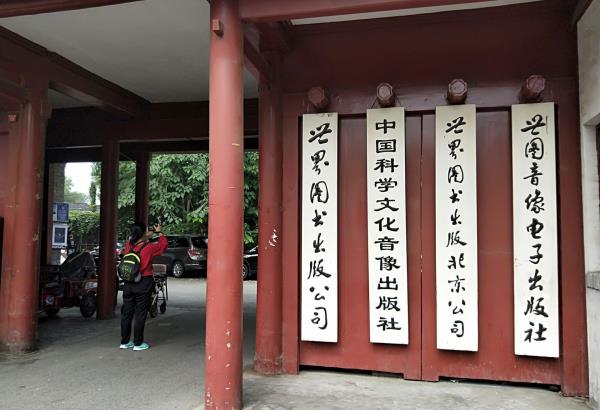 世界图书出版公司
中国科学文化音像出版社
世界图书出版北京公司
世图音像电子出版社